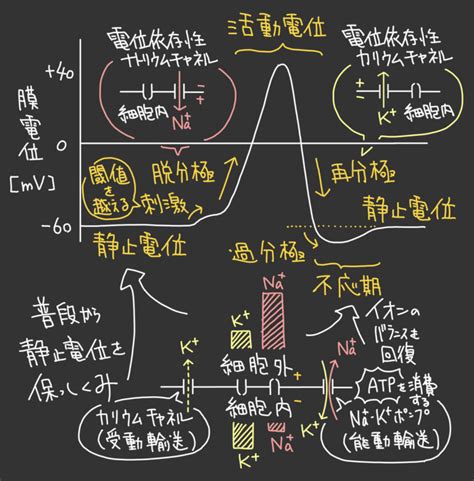 活動電位
電位依存性
ナトリウムチャネル
細胞内
Na+
電位依存性
カリウムチャネル
K+
細胞内
+40
膜電位
[mV]
0
-60
閾値を
越える
刺激
脱分極
再分極
静止電位
静止電位
過分極
不応期
普段から
静止電位を
保つしくみ
K+
カリウムチャネル
(受動輸送)
K+
Na+
細胞外
+
細胞内
-
K+
Na+
イオンの
バランスを
回復
Na+
K+
ATPを消費
する
Na+-K+ポンプ
(能動輸送)